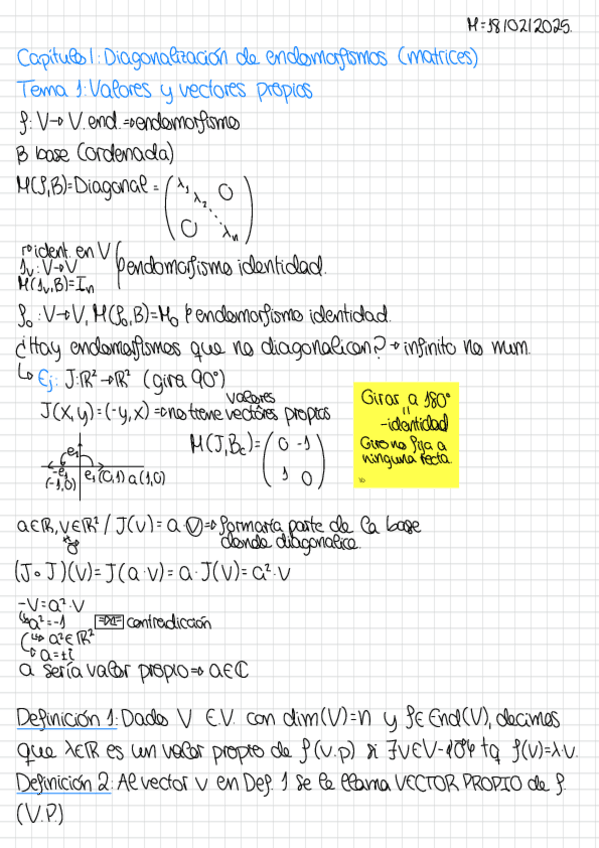 M=18/02/2025.
Capítulo 1: Diagonalización de endomorfismos (matrices)
Tema 1: Valores y vectores propios
f: V→V. end. ⇒ endomorfismo
B base (ordenada)
M(f,B)=Diagonal = (λ₁ λ₂ ⋱ λₙ 0 0)
ident. en V
1ᵥ: V→V } endomorfismo identidad.
M(1ᵥ,B)=Iₙ
f₀: V→V, M(f₀,B)=M₀ } endomorfismo identidad.
¿Hay endomorfismos que no diagonalicen? → infinito no num.
↳ Ej: J:ℝ²→ℝ² (gira 90°)
valores
J(x,y)=(-y,x) ⇒ no tiene vectores propios
M(J,Bc)=(0 -1
1 0)
e₁
-e₁
(-1,0)
e₁ (0,1) a (1,0)
Girar a 180°
=
-identidad
Giro no fija a
ninguna recta.
a∈ℝ, v∈ℝ² / J(v)=a·v ⇒ formaría parte de la base
donde diagonalice.
(J∘J)(v)=J(a·v)=a·J(v)=a²·v
-v=a²·v
↳ a²=-1 contradicción
↳ a²∈ℝ²
↳ a=±i
a sería valor propio ⇒ a∈ℂ
Definición 1: Dado V E.V. con dim(V)=n y f∈End(V), decimos
que λ∈ℝ es un valor propio de f (v.p) si ∃v∈V-{0} tq f(v)=λ·v.
Definición 2: Al vector v en Def. 1 se le llama VECTOR PROPIO de f.
(V.P)